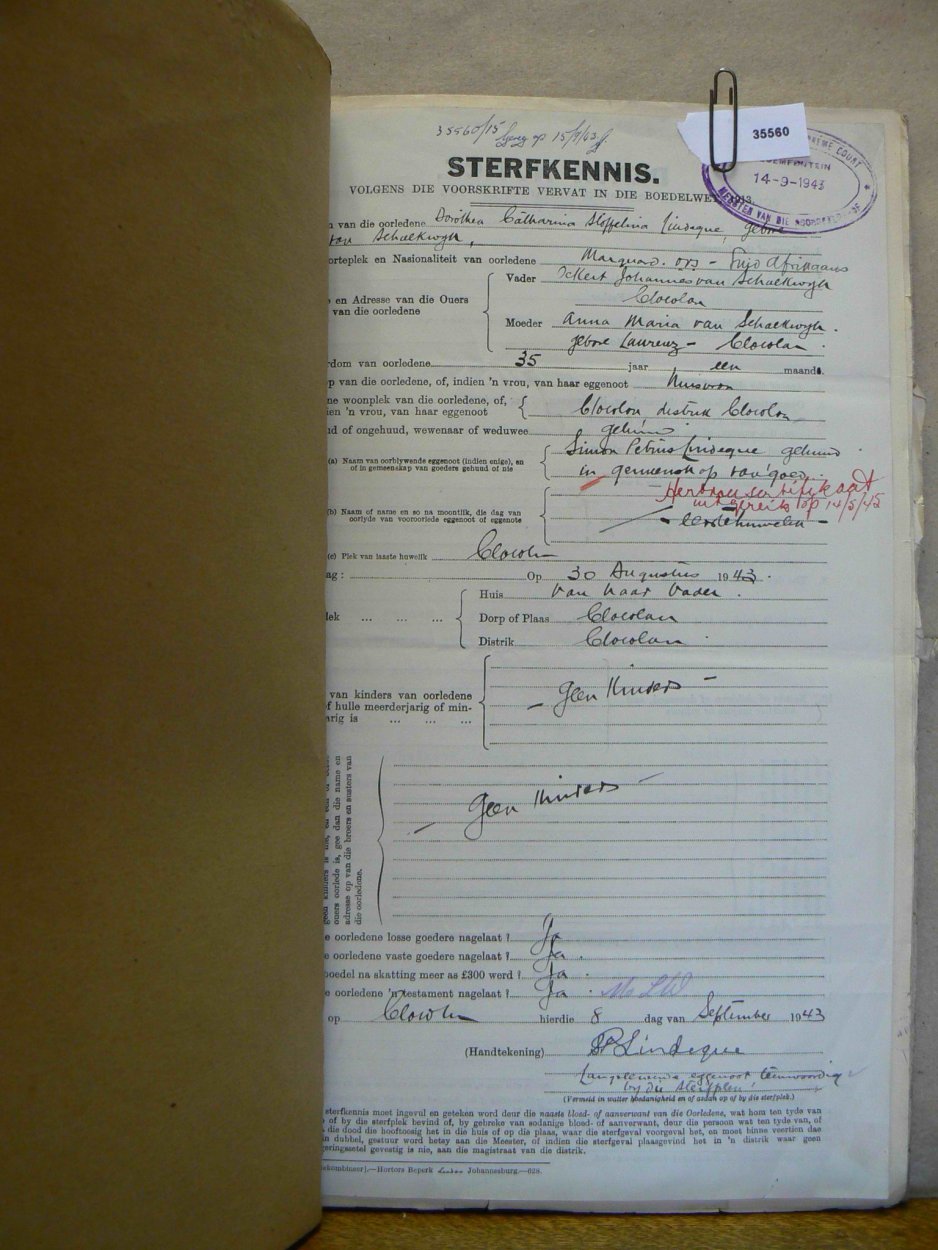 35560/15 op 15/9/43
35560
SUPREME COURT
BLOEMFONTEIN
14-9-1943
MEESTER VAN DIE HOOGGEREGSHOF
STERFKENNIS.
VOLGENS DIE VOORSKRIFTE VERVAT IN DIE BOEDELWET, 1913.
van die oorledene Dorothea Catharina Stoffelina Lindeque, gebore
van Schalkwyk,
orteplek en Nasionaliteit van oorledene Marquard. OVS - Suid Afrikaans
en Adresse van die Ouers
van die oorledene
Vader Ickert Johannes van Schalkwyk
Clocolan
Moeder Anna Maria van Schalkwyk.
gebore Laurenz - Clocolan.
rdom van oorledene 35 jaar een maande.
p van die oorledene, of, indien 'n vrou, van haar eggenoot Huisvrou
ne woonplek van die oorledene, of,
ien 'n vrou, van haar eggenoot Clocolan, distrik Clocolan
ud of ongehuud, wewenaar of weduwee gehuud
(a) Naam van oorblywende eggenoot (indien enige), en
of in gemeenskap van goedere gehuud of nie
Simon Petrus Lindeque gehuud
in gemeenskap van goed.
Hertrou sertifikaat
uitgereik op 14/5/45
(b) Naam of name en so na moontlik, die dag van
oorlyde van vooroorlede eggenoot of eggenote
- eerste huwelik -
(c) Plek van laaste huwelik Clocolan
ag: Op 30 Augustus 1943.
lek ... ... ...
Huis van haar Vader.
Dorp of Plaas Clocolan
Distrik Clocolan.
van kinders van oorledene
f hulle meerderjarig of min-
arig is ... ... ...
- Geen Kinders -
geen kinders is nie, en
ouers oorlede is, gee dan die name en
adresse op van die broers en susters van
die oorledene.
- Geen Kinders -
e oorledene losse goedere nagelaat? Ja
e oorledene vaste goedere nagelaat? Ja.
boedel na skatting meer as £300 werd? Ja.
e oorledene 'n testament nagelaat? Ja.
op Clocolan hierdie 8 dag van September 1943
(Handtekening) SP Lindeque
Langslewende eggenoot teenwoordig
by die sterfplek
(Vermeld in watter hoedanigheid en of asdan op of by die sterfplek.)
sterfkennis moet ingevul en geteken word deur die naaste bloed- of aanverwant van die Oorledene, wat hom ten tyde van
of by die sterfplek bevind of, by gebreke van sodanige bloed- of aanverwant, deur die persoon wat ten tyde van, of
die dood die hooftoesig het in die huis of op die plaas, waar die sterfgeval voorgeval het, en moet binne veertien dae
in dubbel, gestuur word hetsy aan die Meester, of indien die sterfgeval plaasgevind het in 'n distrik waar geen
geringssetel gevestig is nie, aan die magistraat van die distrik.
ekombineer].—Hortors Beperk Johannesburg.—628.